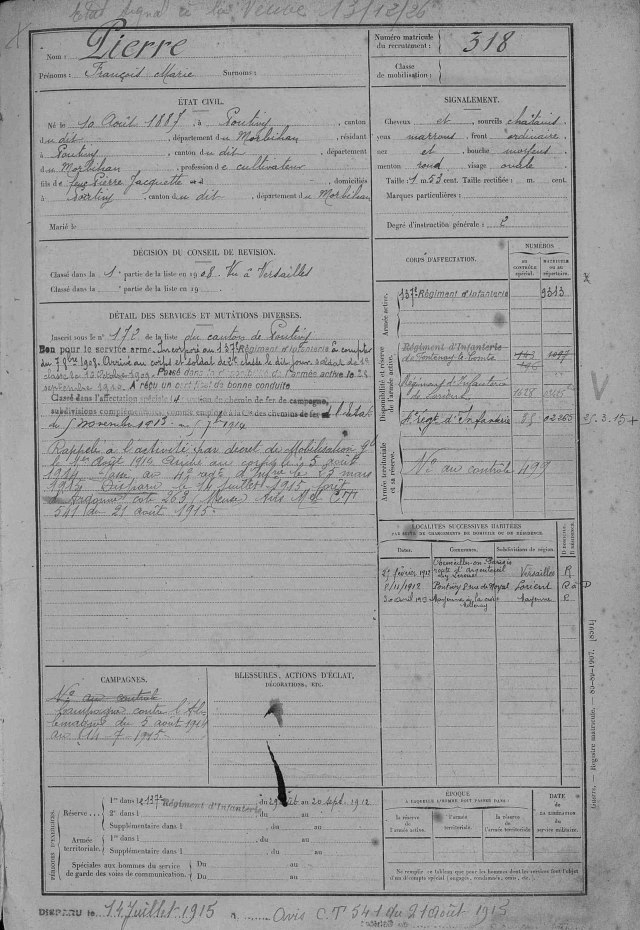 Etat signal ée la Veuve 13/12/26
Nom : Pierre
Prénoms : François Marie Surnoms :
Numéro matricule
du recrutement : 318
Classe
de mobilisation :
ÉTAT CIVIL.
Né le 10 Août 1887, à Pontivy, canton
du dit, département du Morbihan, résidant
à Pontivy, canton du dit, département
du Morbihan, profession de cultivateur
fils de feu Pierre Jacquette domiciliés
à Pontivy, canton du dit, département du Morbihan
Marié le
SIGNALEMENT.
Cheveux et sourcils chatains
yeux marrons, front ordinaire
nez et bouche moyens
menton rond, visage ovale
Taille : 1 m. 53 cent. Taille rectifiée : m. cent.
Marques particulières :
Degré d'instruction générale : 2
DÉCISION DU CONSEIL DE REVISION.
Classé dans la 1e partie de la liste en 1908. Vu à Versailles
Classé dans la e partie de la liste en 19
DÉTAIL DES SERVICES ET MUTATIONS DIVERSES.
Inscrit sous le n° 172 de la liste du canton de Pontivy
Bon pour le service armé. Incorporé au 137e Régiment d'Infanterie à compter
du 7 8bre 1908. Arrivé au corps et soldat de 2e classe le dit jour.
Passé dans la de l'armée active le 25
septembre 1910. A reçu un certificat de bonne conduite
Classé dans l'affectation spéciale section de chemin de fer de campagne,
subdivisions complémentaires comme employé à la Cie des chemins de fer de l'Etat
du 5 novembre 1913 au 1914
Rappelé à l'activité par décret de Mobilisation Gle
du 1er Août 1914. Arrivé au corps le 5 août
1914. Passé au 4e régt d'Infie le 25 mars
1915. Disparu le 14 juillet 1915 forêt
d'Argonne cote 263 Meuse Avis Mel CT
541 du 21 août 1915.
CORPS D'AFFECTATION.
NUMÉROS
AU CONTRÔLE SPÉCIAL.
MATRICULE OU AU RÉPERTOIRE.
Armée active.
137e Régiment d'Infanterie 9313
Disponibilité et réserve de l'armée active.
Régiment d'Infanterie
de Fontenay le Comte
Régiment d'Infanterie
de Lorient 1628
4e régt d'Infanterie 85 02265 25.3.15+
Armée territoriale et sa réserve.
No au contrôle 497
LOCALITÉS SUCCESSIVES HABITÉES
PAR SUITE DE CHANGEMENTS DE DOMICILE OU DE RÉSIDENCE.
Dates. Communes. Subdivisions de région. D. domicile. R. résidence.
27 février 1912 route d'Argenteuil Versailles R
8/11/1912 Pontivy 8 rue de Noyal Lorient
30 avril 1913 Mayenne Mayenne
CAMPAGNES.
No au contrôle
Campagne contre l'Al
lemagne du 5 août 1914
au 14-7-1915
BLESSURES, ACTIONS D'ÉCLAT,
DÉCORATIONS, ETC.
PÉRIODES D'EXERCICES.
Réserve
1re dans le 137e Régiment d'Infanterie du 29 au 20 sept 1912
2e dans l du au
Supplémentaire dans l du au
Armée territoriale.
1re dans l du au
Supplémentaire dans l du au
Spéciales aux hommes du service
de garde des voies de communication.
Du au
Du au
ÉPOQUE
À LAQUELLE L'HOMME DOIT PASSER DANS :
la réserve de l'armée active.
l'armée territoriale.
la réserve de l'armée territoriale.
DATE
DE LA LIBÉRATION DU service militaire.
Ne pas remplir ce tableau pour les hommes dont les services font l'objet
d'un décompte spécial (engagés, condamnés, omis, etc.)
Guerre. — Registre matricule. — 85-89-1907. [8591]
DISPARU le 14 Juillet 1915 Avis C.T 541 du 21 août 1915